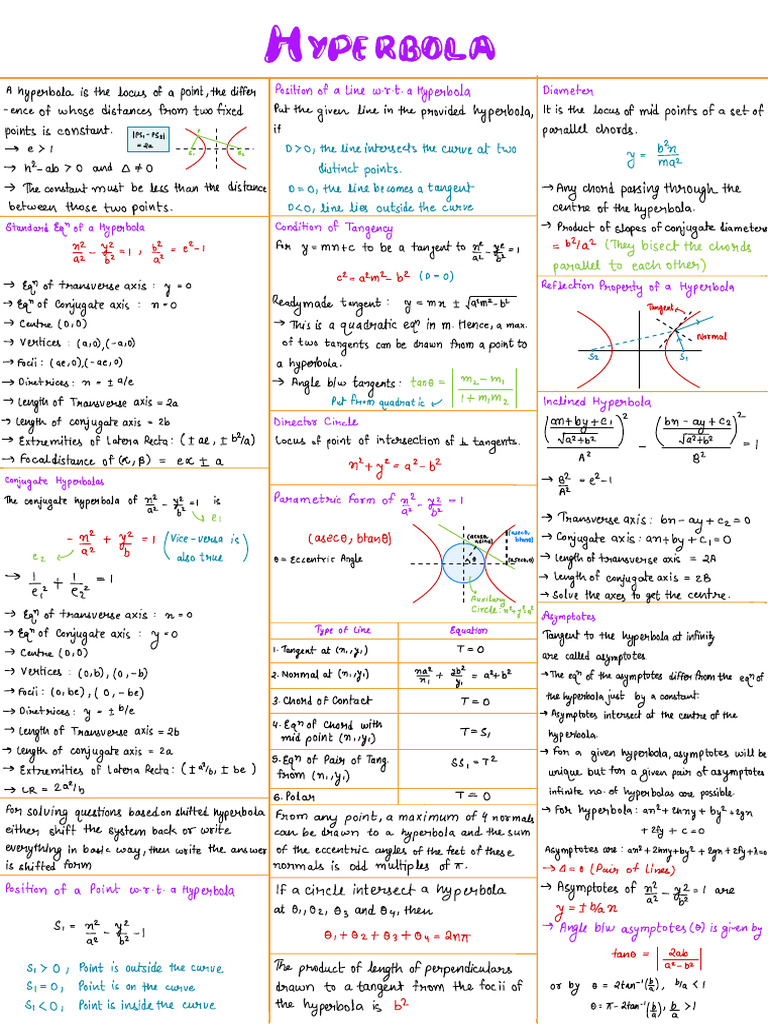 HYPERBOLA
A hyperbola is the locus of a point, the differ
-ence of whose distances from two fixed
points is constant.
|PS₁ - PS₂|
= 2a
S₁
S₂
→ e > 1
→ h² - ab > 0 and Δ ≠ 0
→ The constant must be less than the distance
between those two points.
Standard Eqⁿ of a Hyperbola
x²/a² - y²/b² = 1 , b²/a² = e² - 1
→ Eqⁿ of transverse axis : y = 0
→ Eqⁿ of Conjugate axis : x = 0
→ Centre (0,0)
→ Vertices : (a,0),(-a,0)
→ Focii : (ae,0),(-ae,0)
→ Directrices : x = ± a/e
→ Length of Transverse axis = 2a
→ Length of conjugate axis = 2b
→ Extremities of Latera Recta : (± ae , ± b²/a)
→ Focal distance of (α, β) = eα ± a
Conjugate Hyperbolas
The conjugate hyperbola of x²/a² - y²/b² = 1 is
e₁
- x²/a² + y²/b = 1 (Vice-versa is
also true)
e₂
→ 1/e₁² + 1/e₂² = 1
→ Eqⁿ of transverse axis : x = 0
→ Eqⁿ of Conjugate axis : y = 0
→ Centre (0,0)
→ Vertices : (0,b), (0,-b)
→ Focii : (0,be), (0,-be)
→ Directrices : y = ± b/e
→ Length of Transverse axis = 2b
→ Length of conjugate axis = 2a
→ Extremities of Latera Recta : (± a²/b, ± be)
→ LR = 2a²/b
For solving questions based on shifted hyperbola
either shift the system back or write
everything in basic way, then write the answer
is shifted form
Position of a Point w.r.t. a Hyperbola
S₁ = x²/a² - y²/b² - 1
S₁ > 0 ; Point is outside the curve
S₁ = 0 ; Point is on the curve
S₁ < 0 ; Point is inside the curve
Position of a Line w.r.t. a Hyperbola
Put the given line in the provided hyperbola,
if
D > 0, the line intersects the curve at two
distinct points.
D = 0, the line becomes a tangent
D < 0, line lies outside the curve
Condition of Tangency
For y = mx + c to be a tangent to x²/a² - y²/b² = 1
c² = a²m² - b² (D = 0)
Readymade tangent : y = mx ± √a²m² - b²
→ This is a quadratic eqⁿ in m. Hence, a max.
of two tangents can be drawn from a point to
a hyperbola.
→ Angle b/w tangents : tanθ = |m₂ - m₁ / 1 + m₁m₂|
Put from quadratic
Director Circle
Locus of point of intersection of ⊥ tangents.
x² + y² = a² - b²
Parametric Form of x²/a² - y²/b² = 1
(asecθ, btanθ)
θ = Eccentric Angle
(acosθ, asinθ)
(asecθ, btanθ)
θ
(asecθ,0)
Auxiliary
Circle : x²+y²=a²
Type of Line Equation
1. Tangent at (x₁, y₁) T = 0
2. Normal at (x₁, y₁) xa²/x₁ + yb²/y₁ = a² + b²
3. Chord of Contact T = 0
4. Eqⁿ of Chord with
mid point (x₁, y₁) T = S₁
5. Eqⁿ of Pair of Tang.
from (x₁, y₁) SS₁ = T²
6. Polar T = 0
From any point, a maximum of 4 normals
can be drawn to a hyperbola and the sum
of the eccentric angles of the feet of these
normals is odd multiples of π.
If a circle intersect a hyperbola
at θ₁, θ₂, θ₃ and θ₄, then
θ₁ + θ₂ + θ₃ + θ₄ = 2nπ
The product of length of perpendiculars
drawn to a tangent from the focii of
the hyperbola is b²
Diameter
It is the locus of mid points of a set of
parallel chords.
y = b²x/ma²
→ Any chord passing through the
centre of the hyperbola.
→ Product of slopes of conjugate diameters
= b²/a² (They bisect the chords
parallel to each other)
Reflection Property of a Hyperbola
Tangent
Normal
S₂
S₁
Inclined Hyperbola
((ax + by + c₁)/√a²+b²)²/A² - ((bx - ay + c₂)/√a²+b²)²/B² = 1
→ B²/A² = e² - 1
→ Transverse axis : bx - ay + c₂ = 0
→ Conjugate axis : ax + by + c₁ = 0
→ Length of transverse axis = 2A
→ Length of conjugate axis = 2B
→ Solve the axes to get the centre.
Asymptotes
Tangent to the hyperbola at infinity
are called asymptotes
→ The eqⁿ of the asymptotes differ from the eqⁿ of
the hyperbola just by a constant.
→ Asymptotes intersect at the centre of the
hyperbola.
→ For a given hyperbola, asymptotes will be
unique but for a given pair of asymptotes
infinite no. of hyperbolas are possible.
→ For hyperbola : ax² + 2hxy + by² + 2gx
+ 2fy + c = 0
Asymptotes are : ax² + 2hxy + by² + 2gx + 2fy + λ = 0
→ Δ = 0 (Pair of Lines)
→ Asymptotes of x²/a² - y²/b² = 1 are
y = ± b/a x
→ Angle b/w asymptotes (θ) is given by
tanθ = |2ab / a² - b²|
or by θ = 2tan⁻¹(b/a), b/a < 1
θ = π - 2tan⁻¹(b/a), b/a > 1